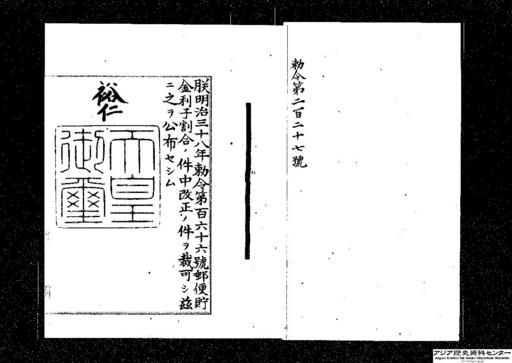 勅令第二百二十七號
朕明治三十八年勅令第百六十六號郵便貯
金利子割合ノ件中改正ノ件ヲ裁可シ茲
ニ之ヲ公布セシム
裕仁
天皇
御璽
アジア歴史資料センター
Japan Center for Asian Historical Records